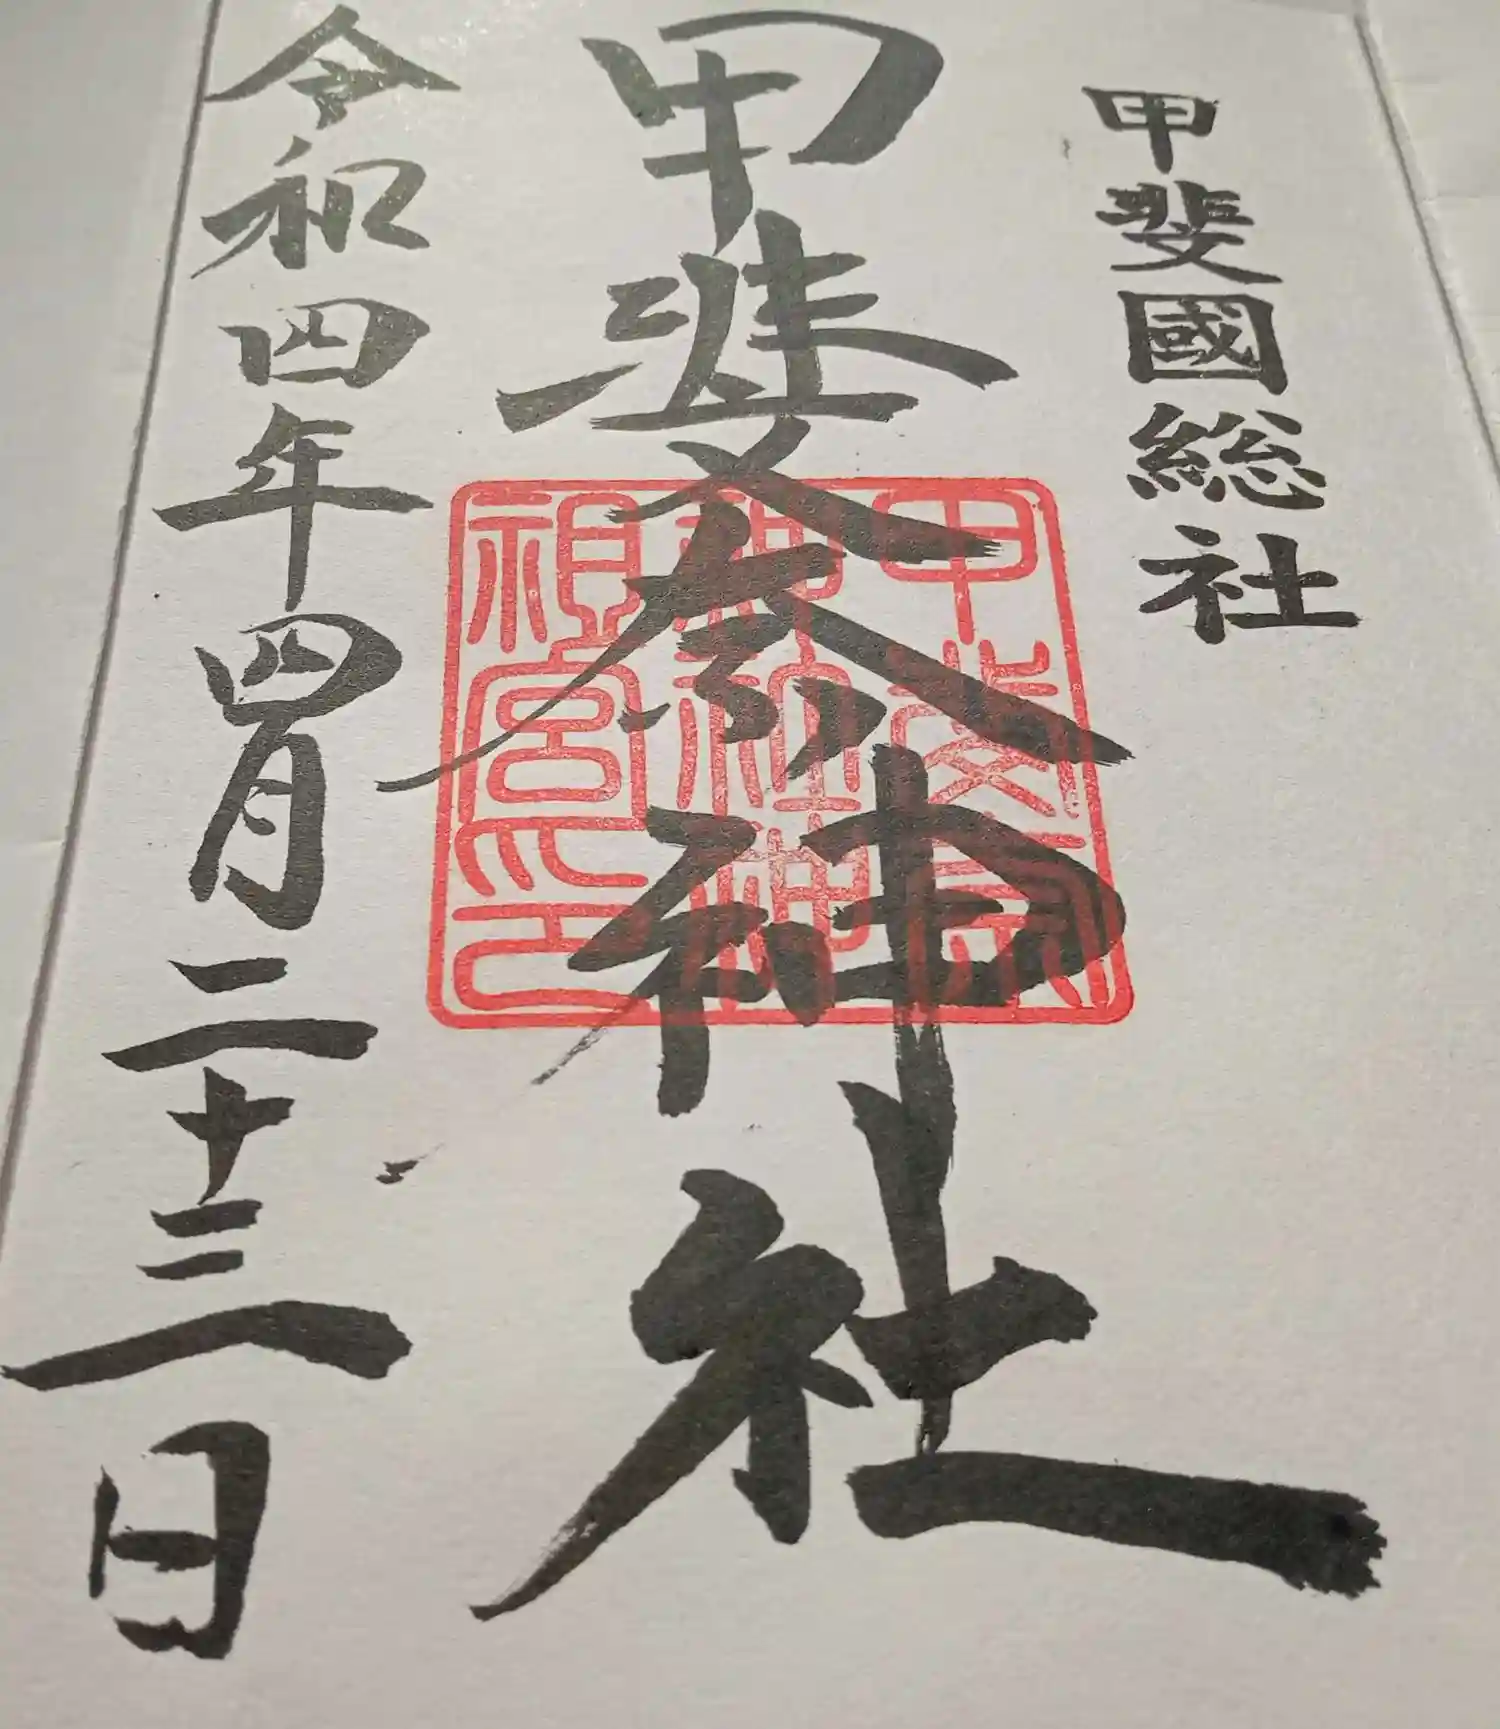 甲斐國総社
甲斐奈神社
令和四年四月二十三日
甲斐奈
神社神
祖宮印